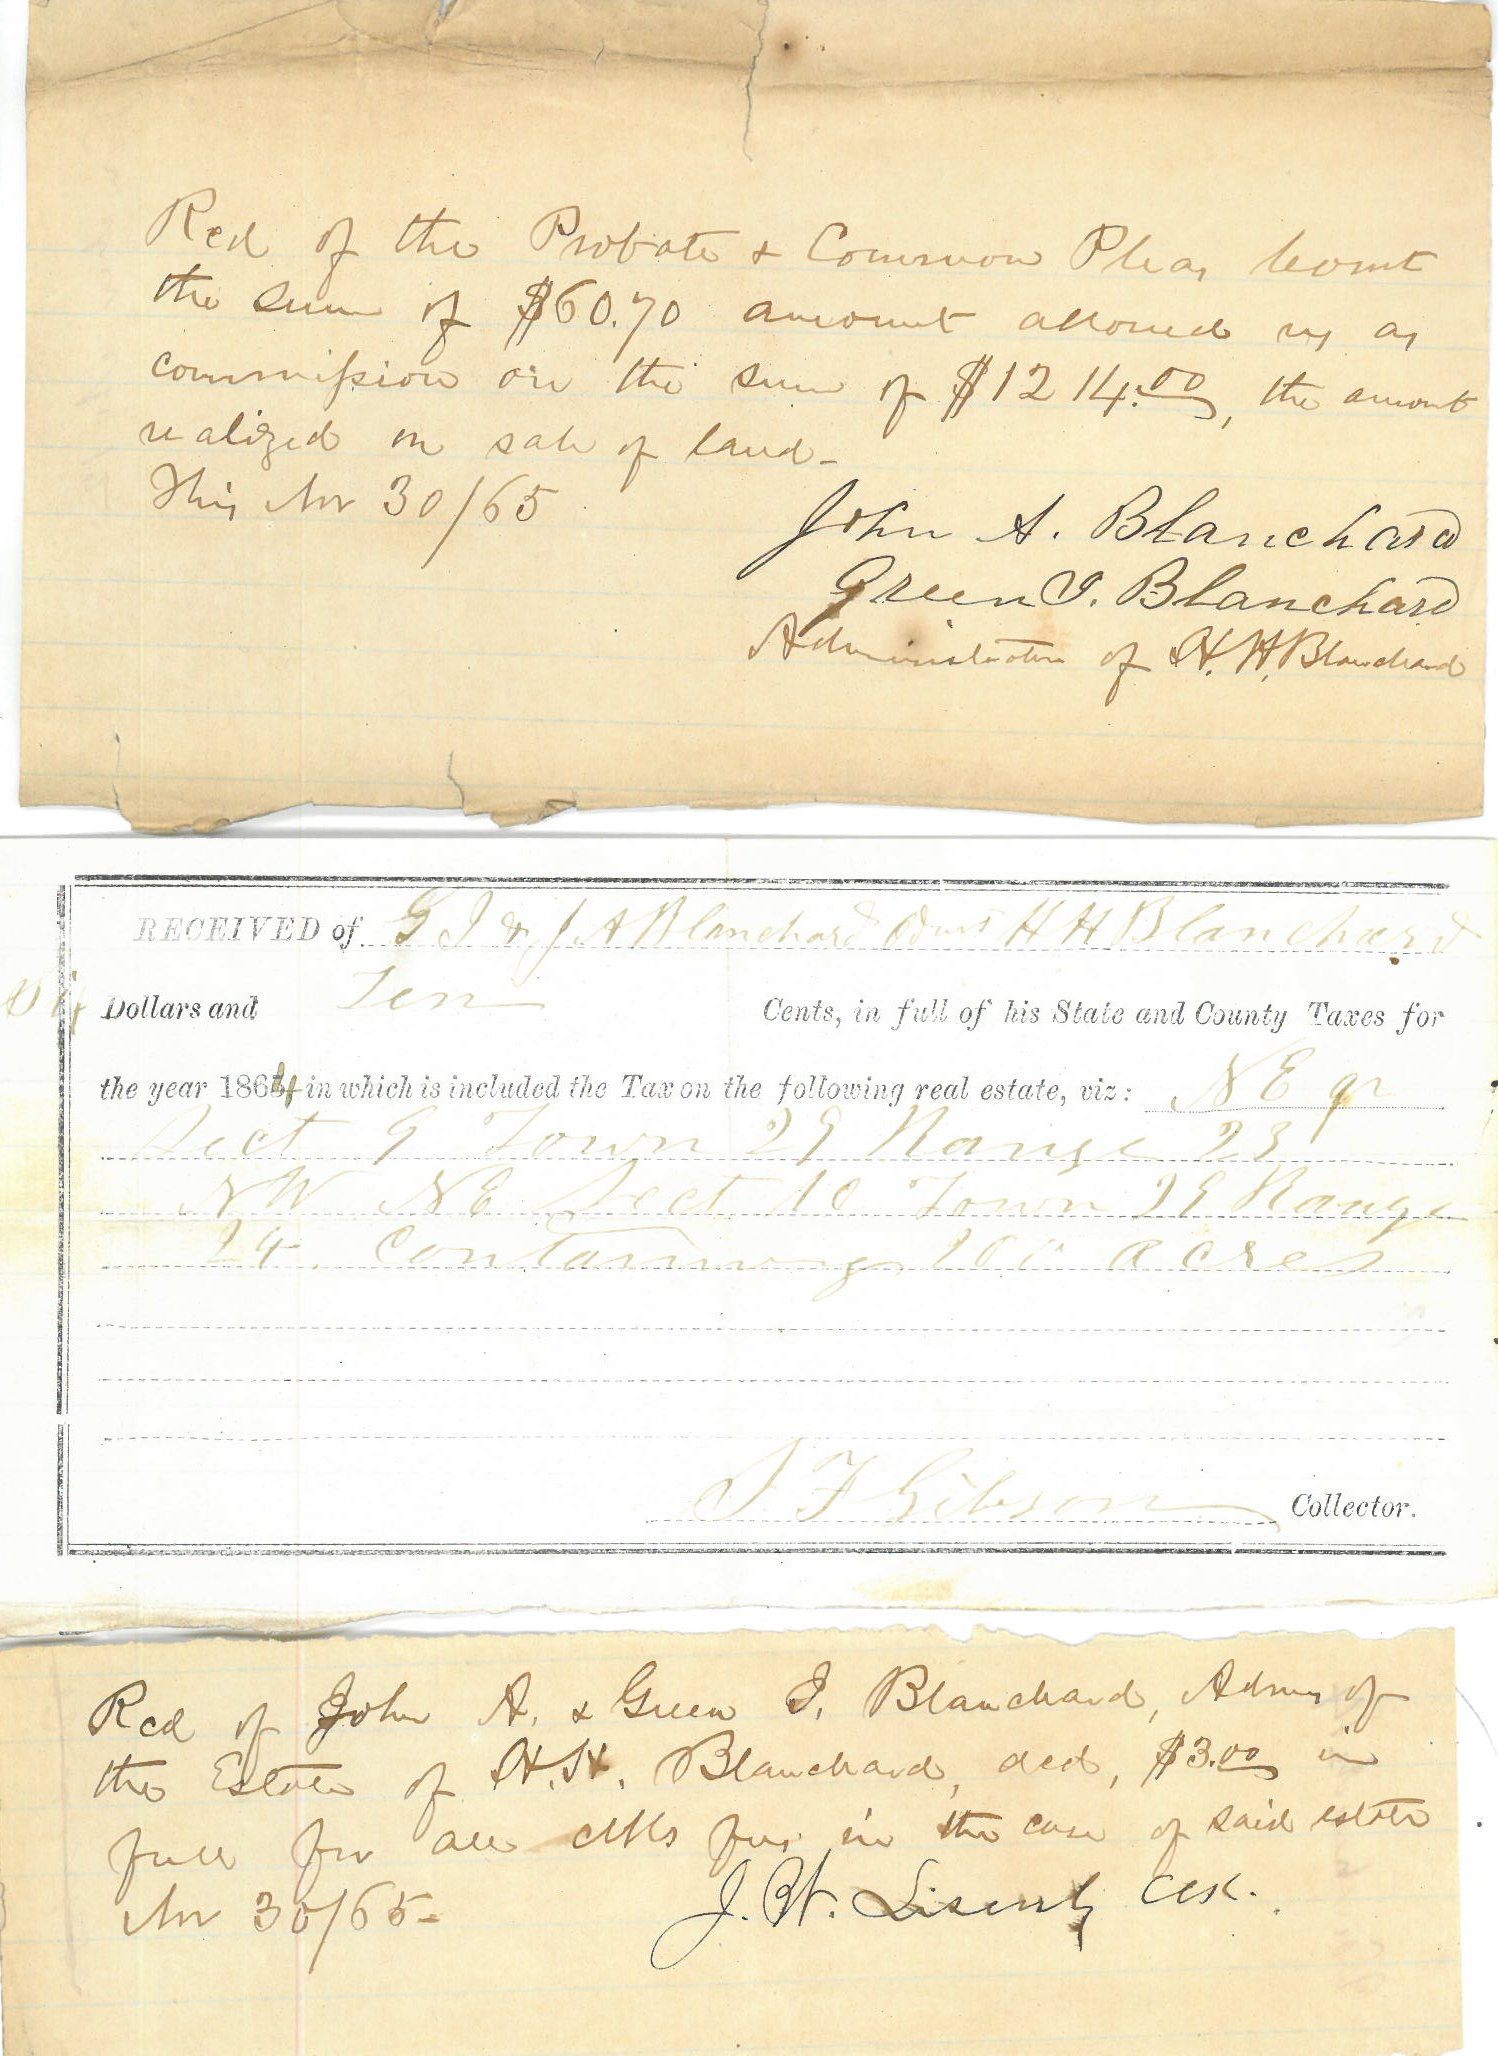 Recd of the Probate & Common Pleas Court
the sum of $60.70 amount allowed us as
commission on the sum of $1214.00, the amount
realized on sale of land -
This Nov 30/65
John A. Blanchard
Green I. Blanchard
Administrators of H. H. Blanchard
RECEIVED of G I & J A Blanchard Adms H H Blanchard
Dollars and Ten Cents, in full of his State and County Taxes for
the year 1864 in which is included the Tax on the following real estate, viz: NE qr
Sect 9 Town 29 Range 23
NW NE Sect 10 Town 29 Range
24. Containing 200 acres
Gibson Collector.
Recd of John A. & Green I. Blanchard, Admrs of
the Estate of H. H. Blanchard, decd, $3.00 in
full for all clks fees in the case of said estate
Nov 30/65 -
J. W. Clk.